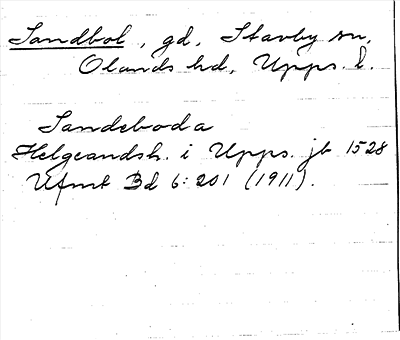 Sandbol, gd, Stavby sn,
Olands hd, Upps. l.
Sandeboda
Helgeandsh. i Upps. jb 1528
Ufmt Bd 6: 201 (1911).